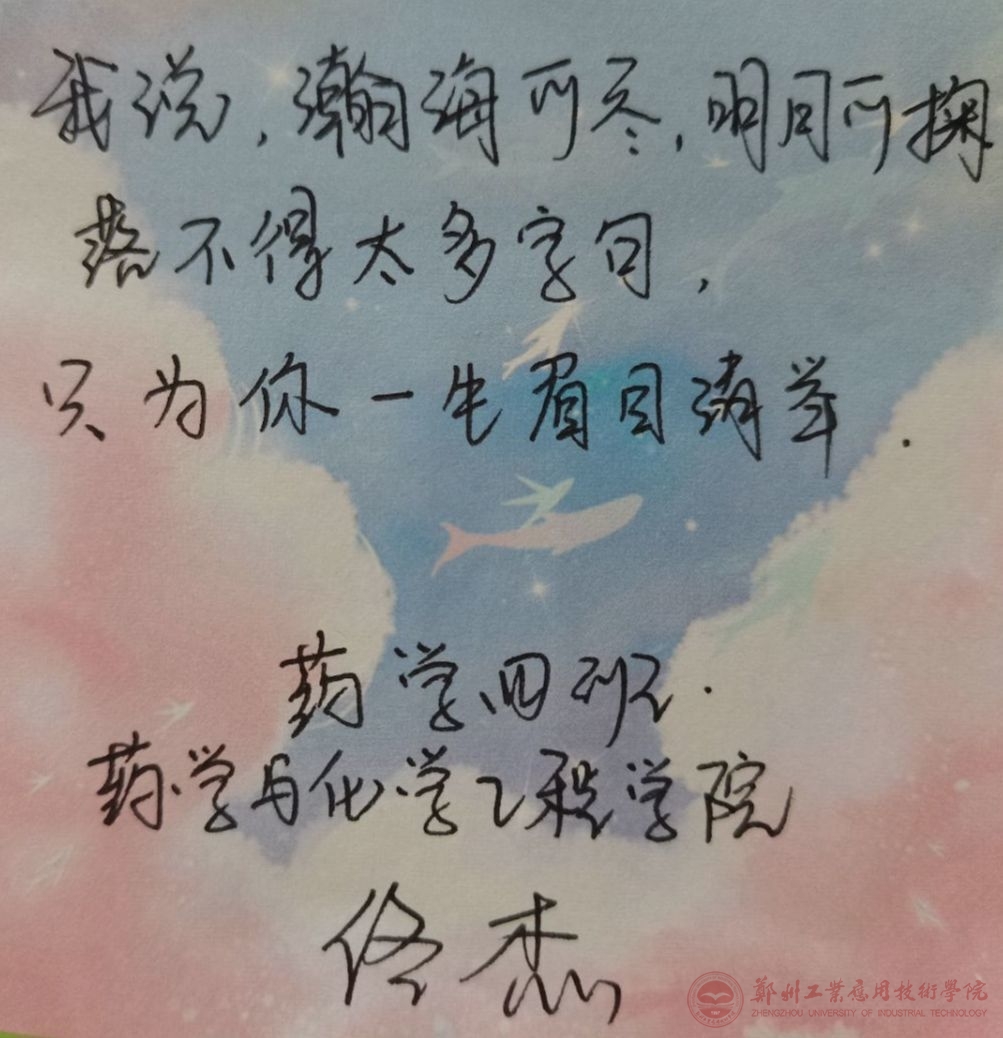 我说，瀚海可尽，明月可掬
落不得太多字句，
只为你一生眉目清举.
药学四班.
药学与化学工程学院
佟杰
鄭州工業應用技術學院
ZHENGZHOU UNIVERSITY OF INDUSTRIAL TECHNOLOGY